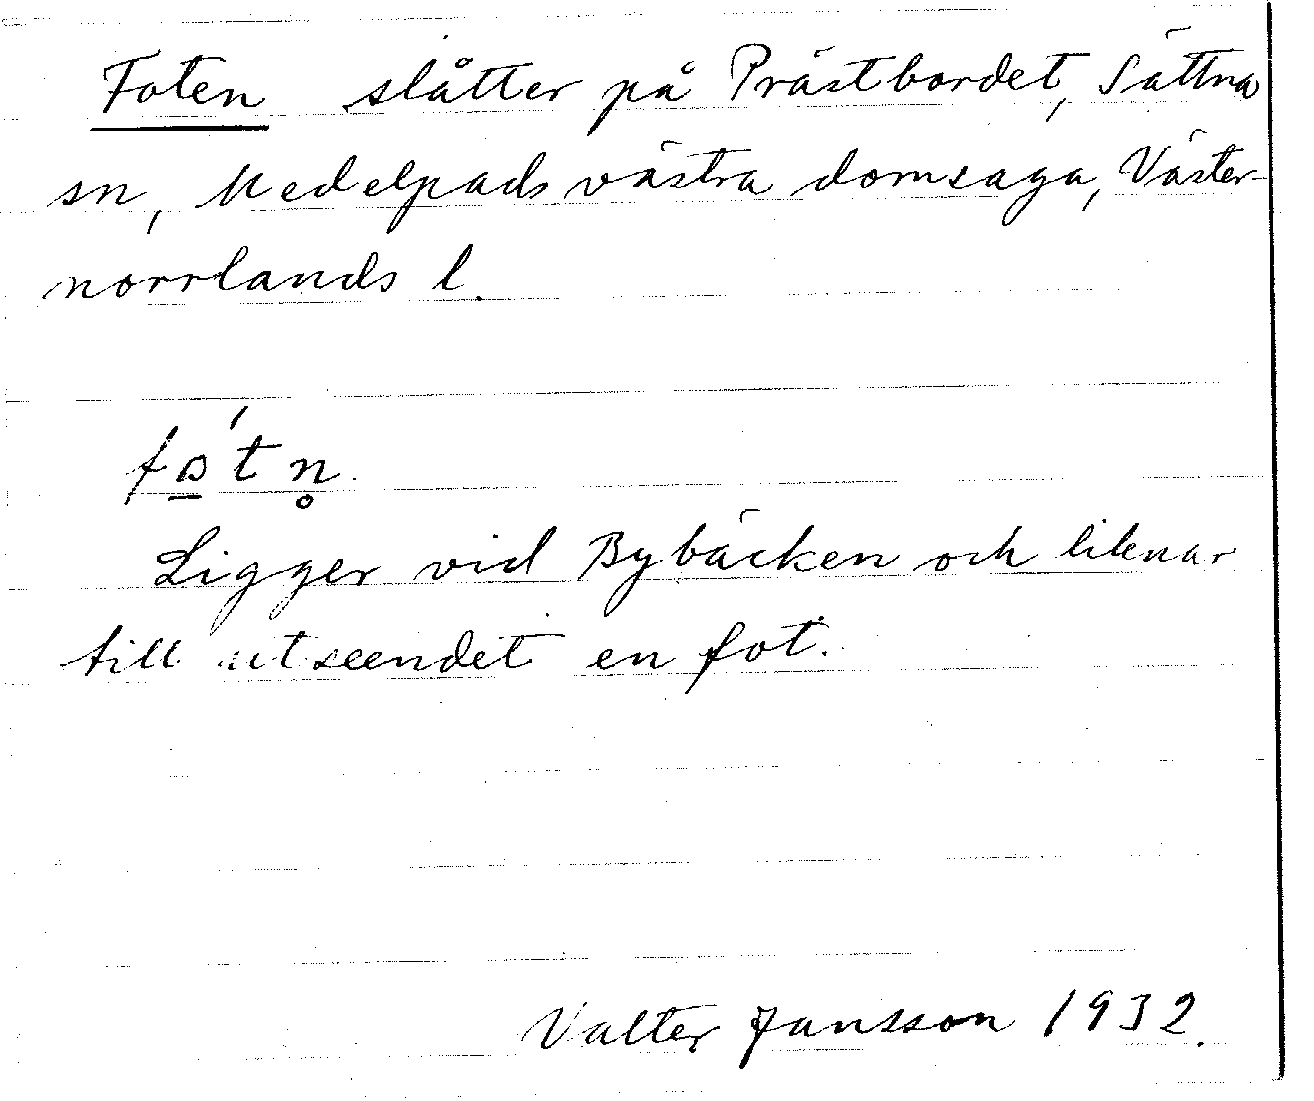 Foten slåtter på Prästbordet, Sättna
sn, Medelpads västra domsaga, Väster-
norrlands l.
fɷ̠́tn̥.
Ligger vid Bybäcken och liknar
till utseendet en fot.
Valter Jansson 1932.